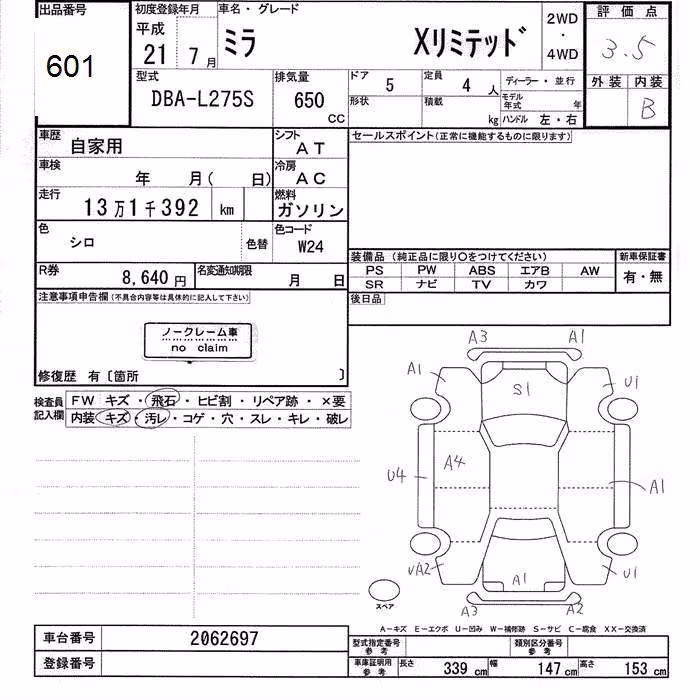 出品番号 601
初度登録年月 平成 21 年 7 月
車名・グレード ミラ Xリミテッド
2WD ・ 4WD
評価点 3.5
外装 内装 B
型式 DBA-L275S
排気量 650 CC
ドア 5
定員 4 人
ディーラー・並行
形状
積載 kg
モデル年式 年
ハンドル 左・右
車歴 自家用
シフト AT
セールスポイント(正常に機能するものに限ります)
車検 年 月( 日)
冷房 AC
走行 13万1千392 km
燃料 ガソリン
色 シロ 色替
色コード W24
装備品 (純正品に限り○をつけてください)
新車保証書
PS PW ABS エアB AW
有・無
SR ナビ TV カワ
R券 8,640 円
名変通知期限 月 日
後日品
注意事項申告欄(不具合内容等は具体的に記入して下さい)
ノークレーム車
no claim
修復歴 有〔箇所 〕
検査員記入欄
FW キズ・飛石・ヒビ割・リペア跡・×要
内装 キズ・汚レ・コゲ・穴・スレ・キレ・破レ
A3 A1
A1 S1 U1
U4 A4 A1
UA2 A1 U1
A3 A2
スペア
A−キズ E−エクボ U−凹み W−補修跡 S−サビ C−腐食 XX−交換済
車台番号 2062697
型式指定番号 参考
類別区分番号 参考
登録番号
車庫証明用 参考 長さ 339 cm 幅 147 cm 高さ 153 cm